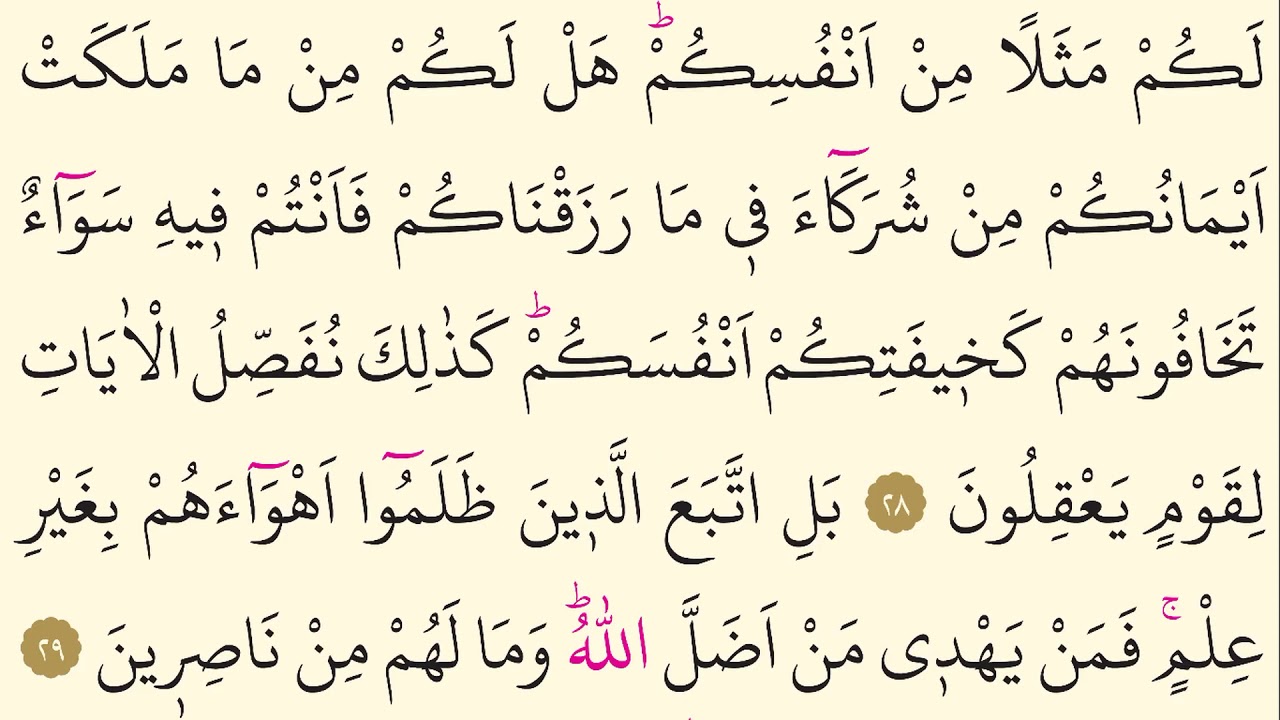 لَكُمْ مَثَلًا مِنْ اَنْفُسِكُمْۜ هَلْ لَكُمْ مِنْ مَا مَلَكَتْ
اَيْمَانُكُمْ مِنْ شُرَكَٓاءَ ف۪ى مَا رَزَقْنَاكُمْ فَاَنْتُمْ ف۪يهِ سَوَٓاءٌ
تَخَافُونَهُمْ كَخ۪يفَتِكُمْ اَنْفُسَكُمْؕ كَذٰلِكَ نُفَصِّلُ الْاٰيَاتِ
لِقَوْمٍ يَعْقِلُونَ ٢٨ بَلِ اتَّبَعَ الَّذ۪ينَ ظَلَمُٓوا اَهْوَٓاءَهُمْ بِغَيْرِ
عِلْمٍۚ فَمَنْ يَهْد۪ى مَنْ اَضَلَّ اللّٰهُؕ وَمَا لَهُمْ مِنْ نَاصِر۪ينَ ٢٩